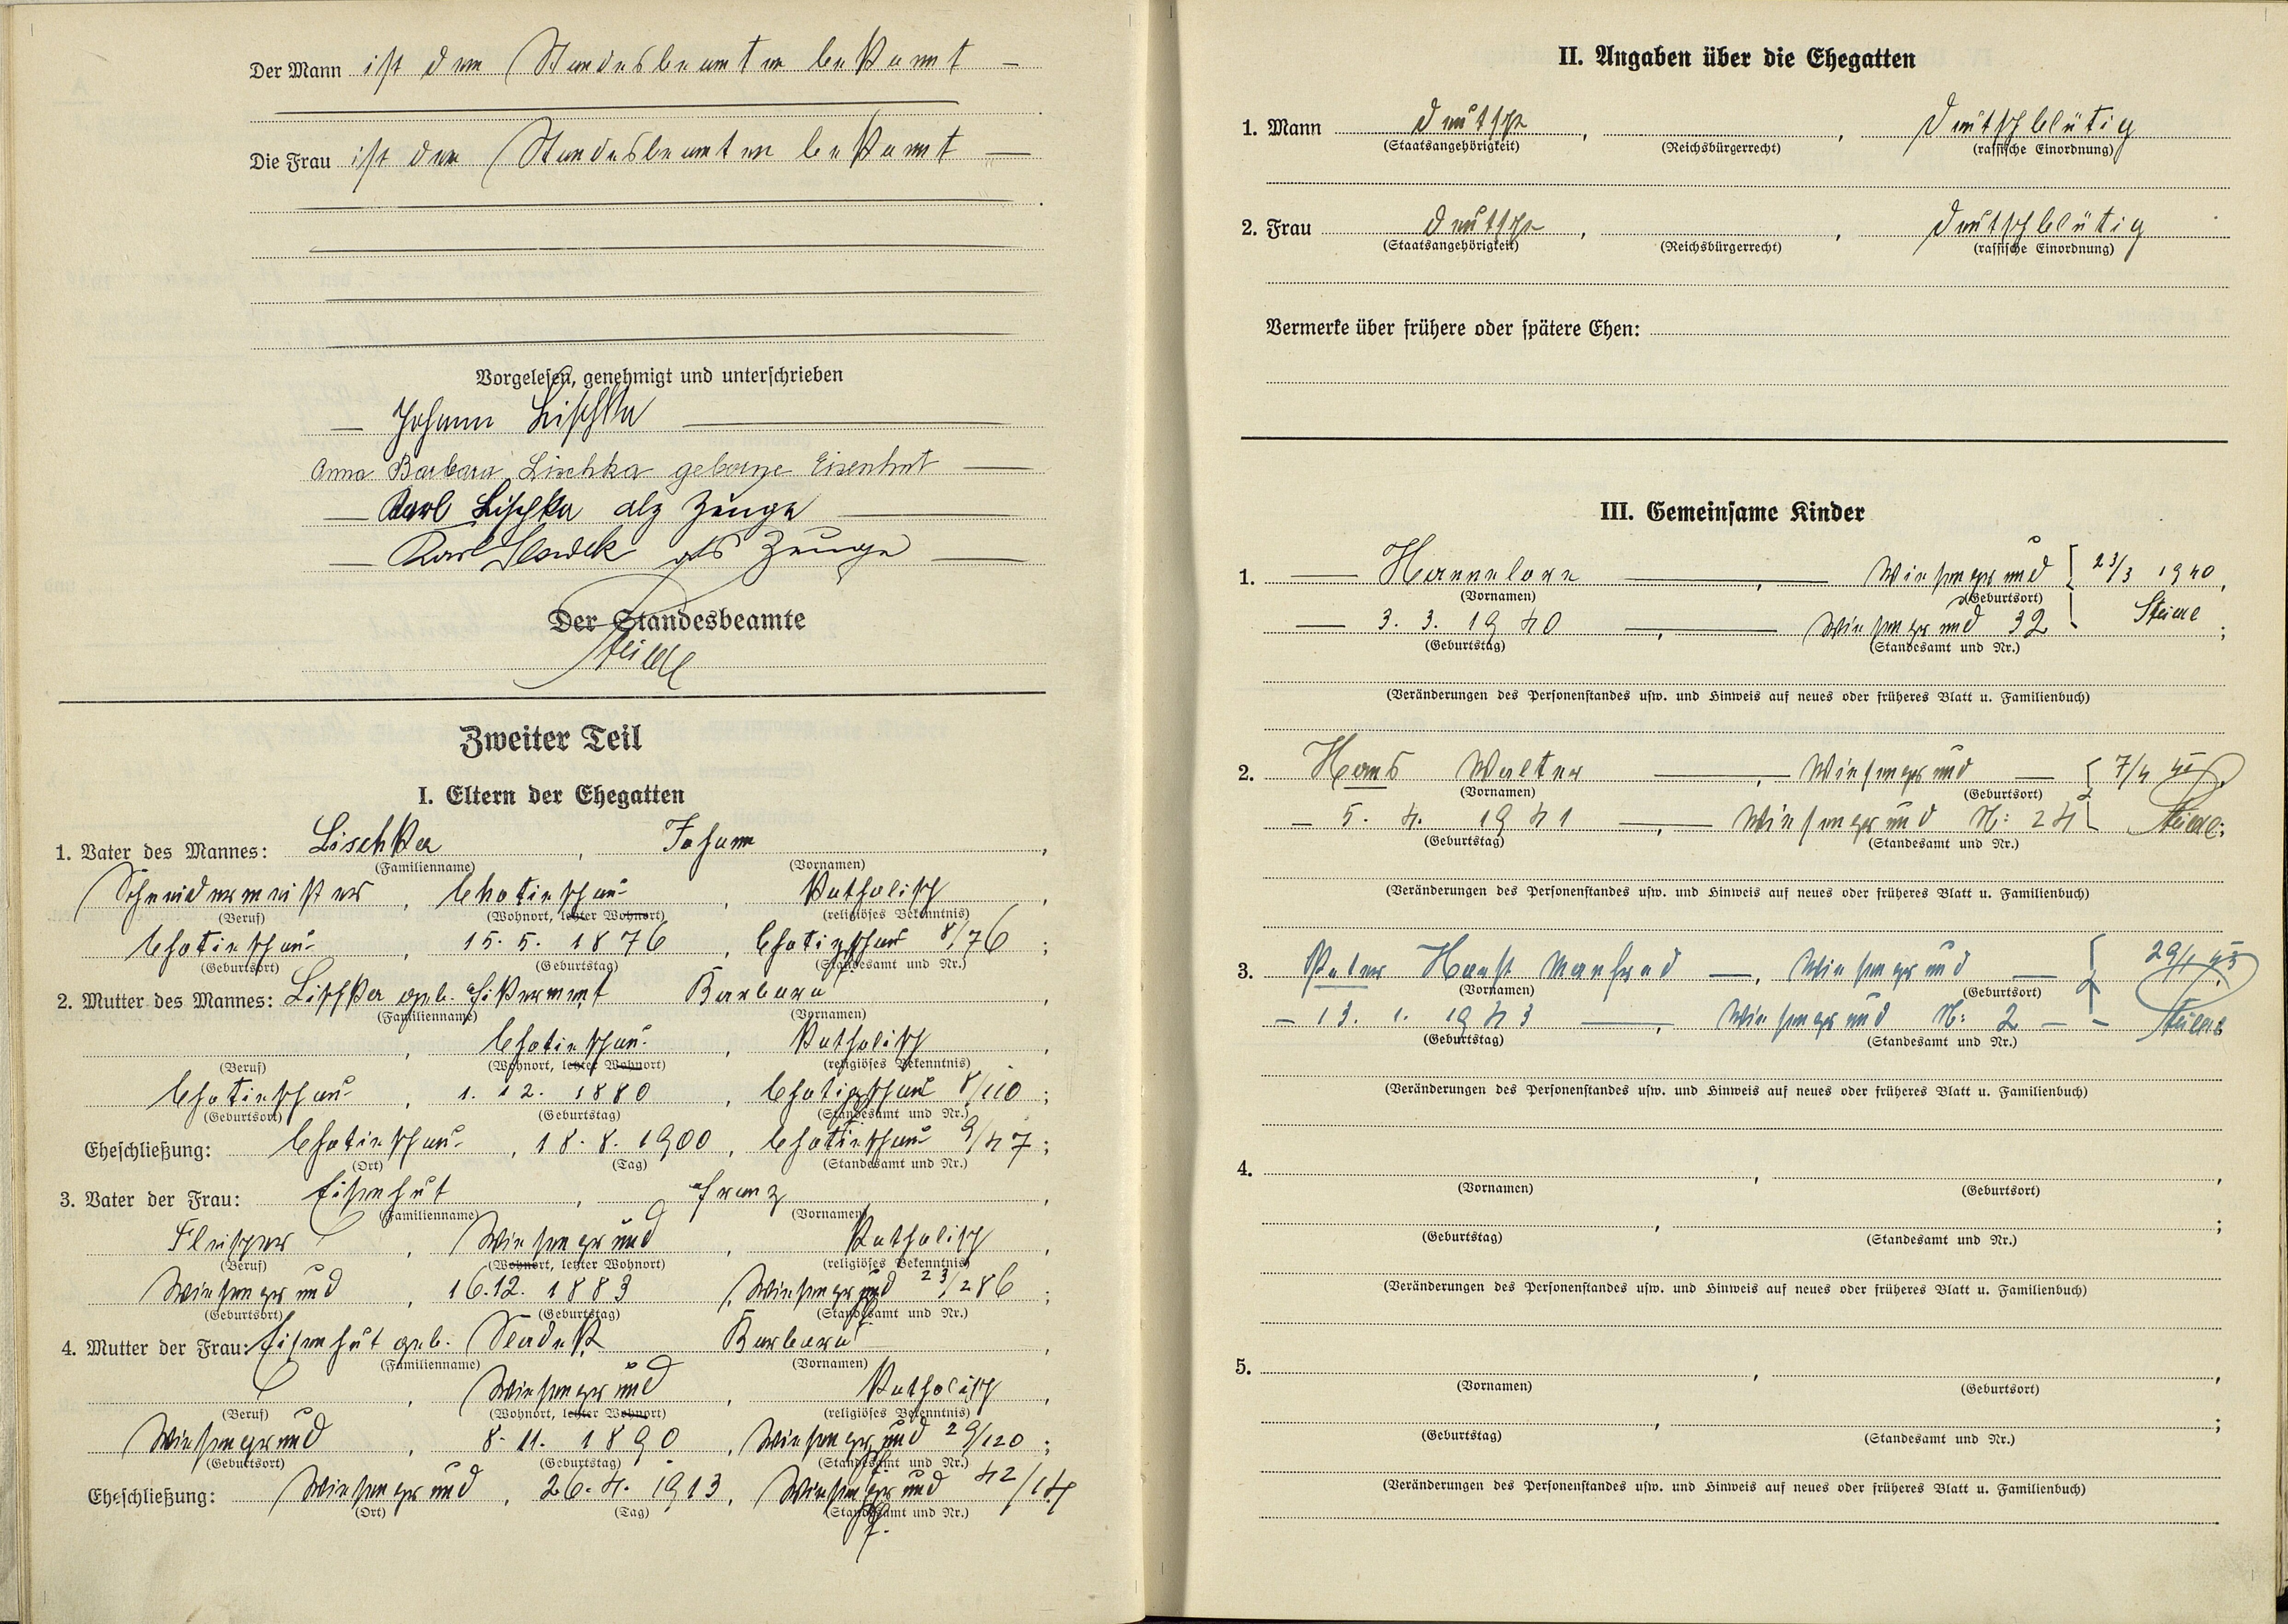 Der Mann ist dem Standesbeamten bekannt —
Die Frau ist dem Standesbeamten bekannt —
Vorgelesen, genehmigt und unterschrieben
— Johann Lischka —
Anna Barbara Lischka geborene Eisenhut —
— Karl Lischka als Zeuge —
— Karl Sladek als Zeuge —
Der Standesbeamte
Zweiter Teil
I. Eltern der Ehegatten
1. Vater des Mannes: Lischka, Johann,
(Familienname) (Vornamen)
Schneidermeister, Chotieschau, katholisch,
(Beruf) (Wohnort, letzter Wohnort) (religiöses Bekenntnis)
Chotieschau, 15. 5. 1876, Chotieschau 8/76;
(Geburtsort) (Geburtstag) (Standesamt und Nr.)
2. Mutter des Mannes: Lischka geb. Barbara,
(Familienname) (Vornamen)
, Chotieschau, katholisch,
(Beruf) (Wohnort, letzter Wohnort) (religiöses Bekenntnis)
Chotieschau, 1. 12. 1880, Chotieschau 8/110;
(Geburtsort) (Geburtstag) (Standesamt und Nr.)
Eheschließung: Chotieschau, 18. 8. 1900, Chotieschau 9/47;
(Ort) (Tag) (Standesamt und Nr.)
3. Vater der Frau: Eisenhut, Franz,
(Familienname) (Vornamen)
Fleischer, Wiesengrund, katholisch,
(Beruf) (Wohnort, letzter Wohnort) (religiöses Bekenntnis)
Wiesengrund, 16. 12. 1883, Wiesengrund 23/286;
(Geburtsort) (Geburtstag) (Standesamt und Nr.)
4. Mutter der Frau: Eisenhut geb. Sladek, Barbara,
(Familienname) (Vornamen)
, Wiesengrund, katholisch,
(Beruf) (Wohnort, letzter Wohnort) (religiöses Bekenntnis)
Wiesengrund, 8. 11. 1890, Wiesengrund 29/120;
(Geburtsort) (Geburtstag) (Standesamt und Nr.)
Eheschließung: Wiesengrund, 26. 4. 1913, Wiesengrund 42/14
(Ort) (Tag) (Standesamt und Nr.)
II. Angaben über die Ehegatten
1. Mann deutsch, , deutschblütig
(Staatsangehörigkeit) (Reichsbürgerrecht) (rassische Einordnung)
2. Frau deutsch, , deutschblütig
(Staatsangehörigkeit) (Reichsbürgerrecht) (rassische Einordnung)
Vermerke über frühere oder spätere Ehen:
III. Gemeinsame Kinder
1. — Hannelore —, — Wiesengrund 23/3 1940,
(Vornamen) (Geburtsort)
— 3. 3. 1940 —, — Wiesengrund 32;
(Geburtstag) (Standesamt und Nr.)
(Veränderungen des Personenstandes usw. und Hinweis auf neues oder früheres Blatt u. Familienbuch)
2. Hans Walter —, — Wiesengrund — 7/4 41
(Vornamen) (Geburtsort)
— 5. 4. 1941 —, — Wiesengrund N: 24
(Geburtstag) (Standesamt und Nr.)
(Veränderungen des Personenstandes usw. und Hinweis auf neues oder früheres Blatt u. Familienbuch)
3. Peter Horst Manfred —, Wiesengrund — 29/1 43
(Vornamen) (Geburtsort)
— 13. 1. 1943 —, Wiesengrund N: 2 — —
(Geburtstag) (Standesamt und Nr.)
(Veränderungen des Personenstandes usw. und Hinweis auf neues oder früheres Blatt u. Familienbuch)
4. , ,
(Vornamen) (Geburtsort)
, ;
(Geburtstag) (Standesamt und Nr.)
(Veränderungen des Personenstandes usw. und Hinweis auf neues oder früheres Blatt u. Familienbuch)
5. , ,
(Vornamen) (Geburtsort)
, ;
(Geburtstag) (Standesamt und Nr.)
(Veränderungen des Personenstandes usw. und Hinweis auf neues oder früheres Blatt u. Familienbuch)